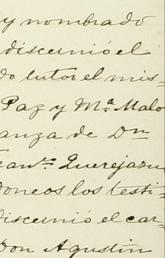 y nombrado
discernió el
do tutor el mis-
Paz y Mª Malo
anza de Dn
Querejazu
oneos los testi-
discernió el car-
Don Agustin